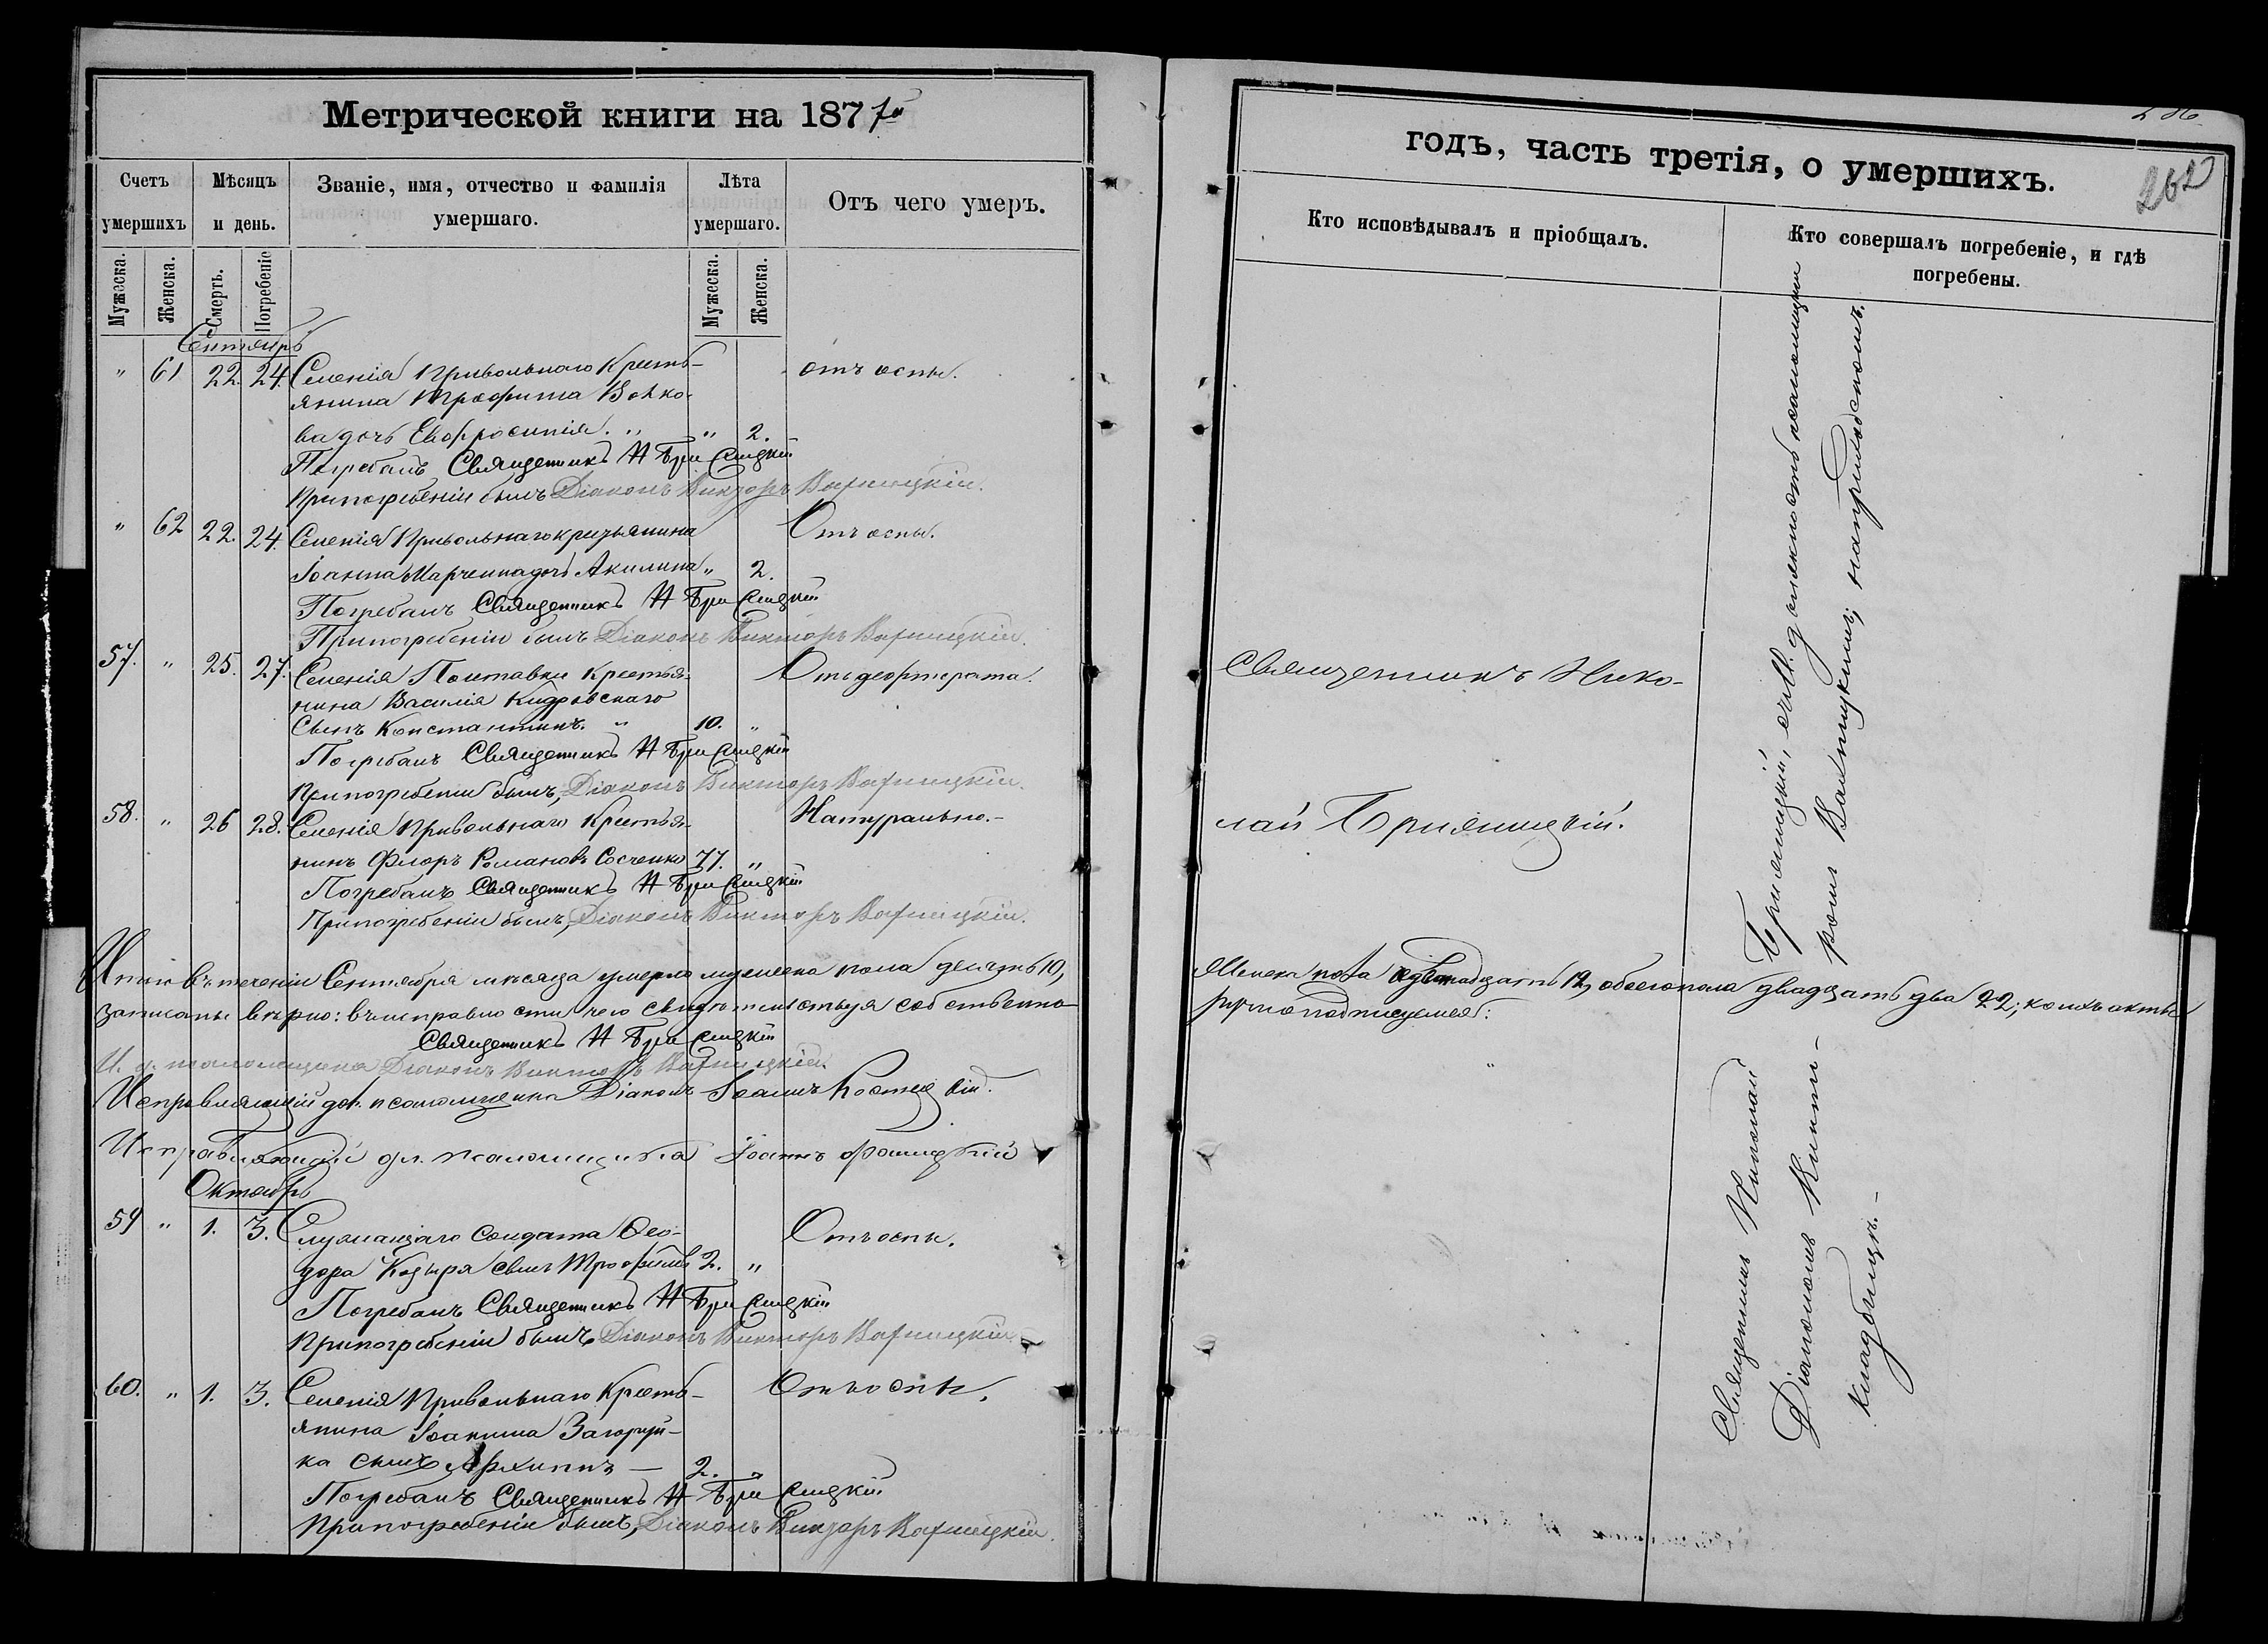 Метрической книги на 1877й
Счетъ умершихъ
Мѣсяцъ и день.
Званіе, имя, отчество и фамилія умершаго.
Лѣта умершаго.
Отъ чего умеръ.
Мужеска. Женска. Смерть. Погребеніе Мужеска. Женска.
Сентябрь
" 61 22. 24. Селенія Привольнаго Кресть- отъ оспы.
янина Трофима Волко-
ва дочь Евфросинія. " " 2.
Погребалъ Священникъ Н Бриславскій
При погребеніи былъ Діаконъ Викторъ Варницкій.
" 62 22. 24. Селенія Привольнаго крестьянина Отъ оспы.
Іоанна Марченка дочь Акилина " 2.
Погребалъ Священникъ Н
При погребеніи былъ Діаконъ Викторъ Варницкій.
57. " 25. 27. Селенія Полтавки Крестья- Отъ дефтерита.
нина Василія Кидровскаго
Сынъ Константинъ. " 10. "
Погребалъ Священникъ Н
При погребеніи былъ, Діаконъ Викторъ Варницкій.
58. " 26 28. Селенія Привольнаго Крестья- Натурально.-
нинъ Флоръ Романовъ Сосченко 77. "
Погребалъ Священникъ Н
При погребеніи былъ, Діаконъ Викторъ Варницкій.
Итого въ теченіи Сентября мѣсяца умерло мужеска пола десять 10,
записаны вѣрно: въ исправности чего свидѣтельствуя собственно-
Священникъ Н
И. д. псаломщика Діаконъ Викторъ Варницкій.
Исправляющій дол. псаломщика Діаконъ Іоаннъ
Исправляющій дол. псаломщика Іоаннъ
Октябрь
59 " 1. 3. Служащаго Солдата Ѳео- Отъ оспы.
дора Козыря сынъ Трофимъ 2. "
Погребалъ Священникъ Н
При погребеніи былъ Діаконъ Викторъ Варницкій
60. " 1. 3. Селенія Привольнаго Кресть- Отъ оспы.
янина Іоанна Загоруй-
ка сынъ Архипъ — 2. "
Погребалъ Священникъ Н
При погребеніи былъ, Діаконъ Викторъ Варницкій.
годъ, часть третія, о умершихъ.
262
Кто исповѣдывалъ и пріобщалъ.
Кто совершалъ погребеніе, и гдѣ погребены.
Священникъ Нико-
лай
Женска пола двенадцать 12, обоего пола двадцать два 22; коихъ акты
руч но подписуемся:
Священникъ Николай
Діакономъ Викто-
ромъ Варницкимъ, на приходскомъ
кладбищѣ.-